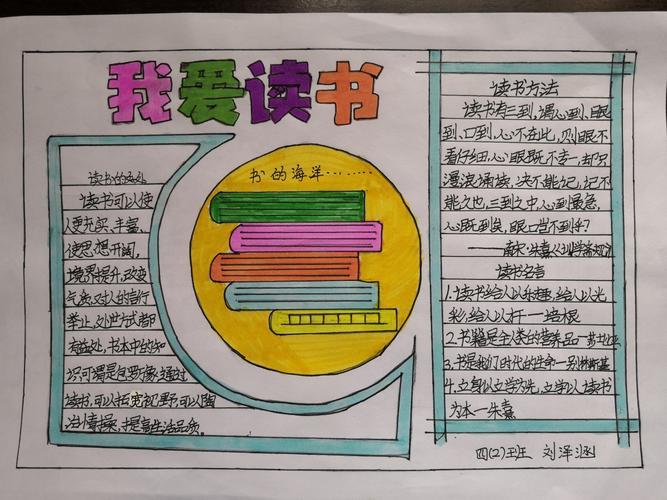 我爱读书
读书的好处
读书可以使
人更充实、丰富、
使思想开阔,
境界提升,改变
气质,对人的言行
举止,处世方式都
有益处,书本中的知
识可谓是包罗万像,通过
读书,可以拓宽视野,可以陶
冶情操,提高生活品质。
书的海洋………
读书方法
读书有三到,谓心到、眼
到、口到,心不在此,则眼不
看仔细,心眼既不专一,却只
漫浪诵读,决不能记,记不
能久也,三到之中,心到最急,
心既到矣,眼口岂不到乎?
——南宋·朱熹《训学斋规》
读书名言
1.读书给人以乐趣,给人以光
彩,给人以才干—培根
2.书籍是全人类的营养品—莎士比亚
3.书是我们时代的生命—别林斯基
4.立身以立学为先,立学以读书
为本—朱熹
四(2)班 刘泽涵